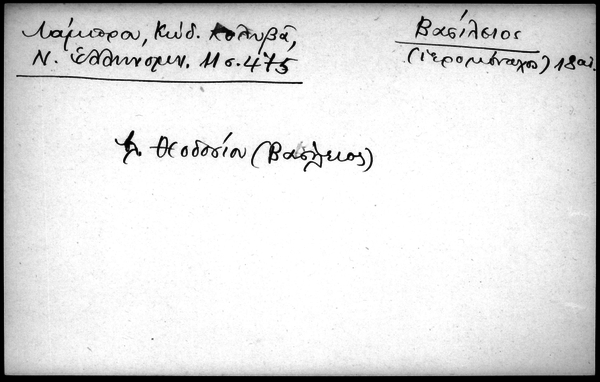 Λάμπρου, Κώδ. Κολυβᾶ,
Ν. Ἑλληνομν. 11 σ. 475
Βασίλειος
(ἱερομόναχος) 18 αἰ.
Θεοδοσίου (Βασίλειος)